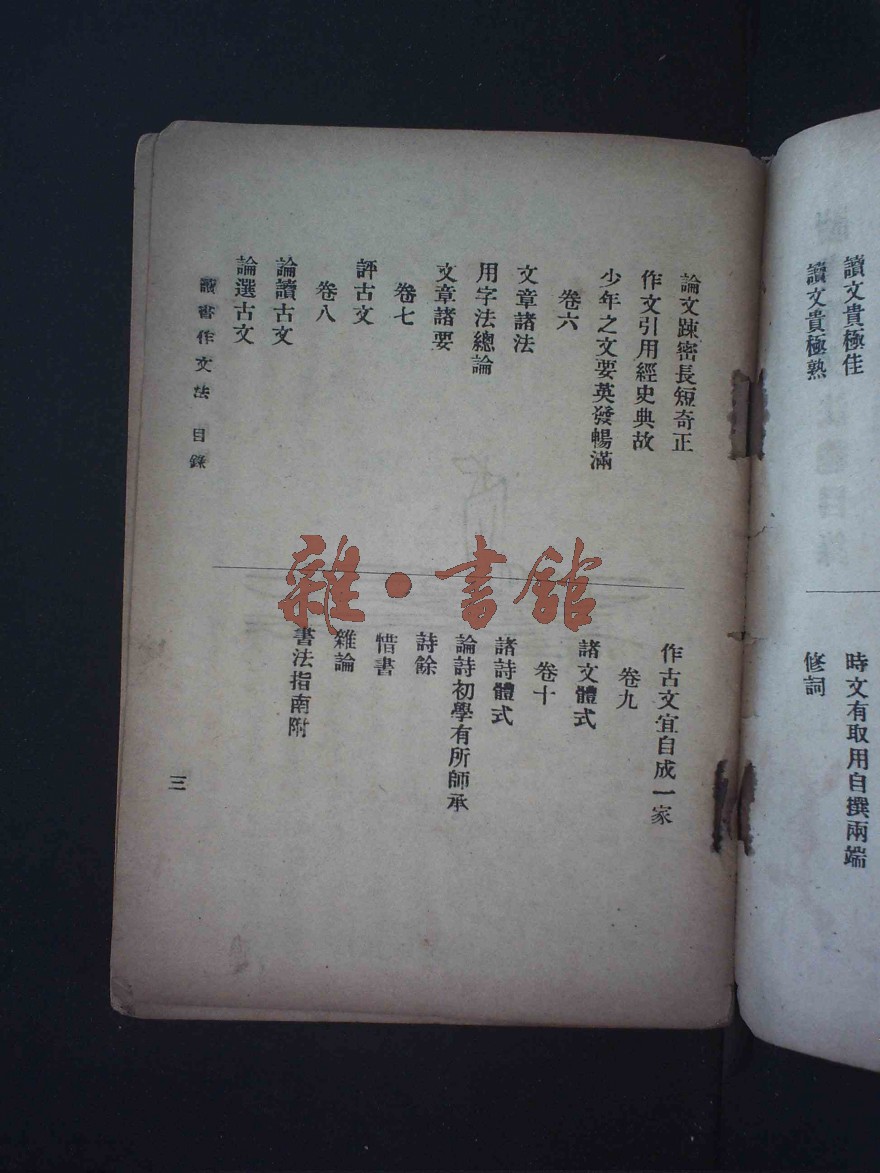 讀文貴極佳
讀文貴極熟
時文有取用自撰兩端
修詞
論文踈密長短奇正
作文引用經史典故
少年之文要英發暢滿
卷六
文章諸法
用字法總論
文章諸要
卷七
評古文
卷八
論讀古文
論選古文
作古文宜自成一家
卷九
諸文體式
卷十
諸詩體式
論詩初學有所師承
詩餘
惜書
雜論
書法指南附
讀書作文法 目錄
三
雜·書館